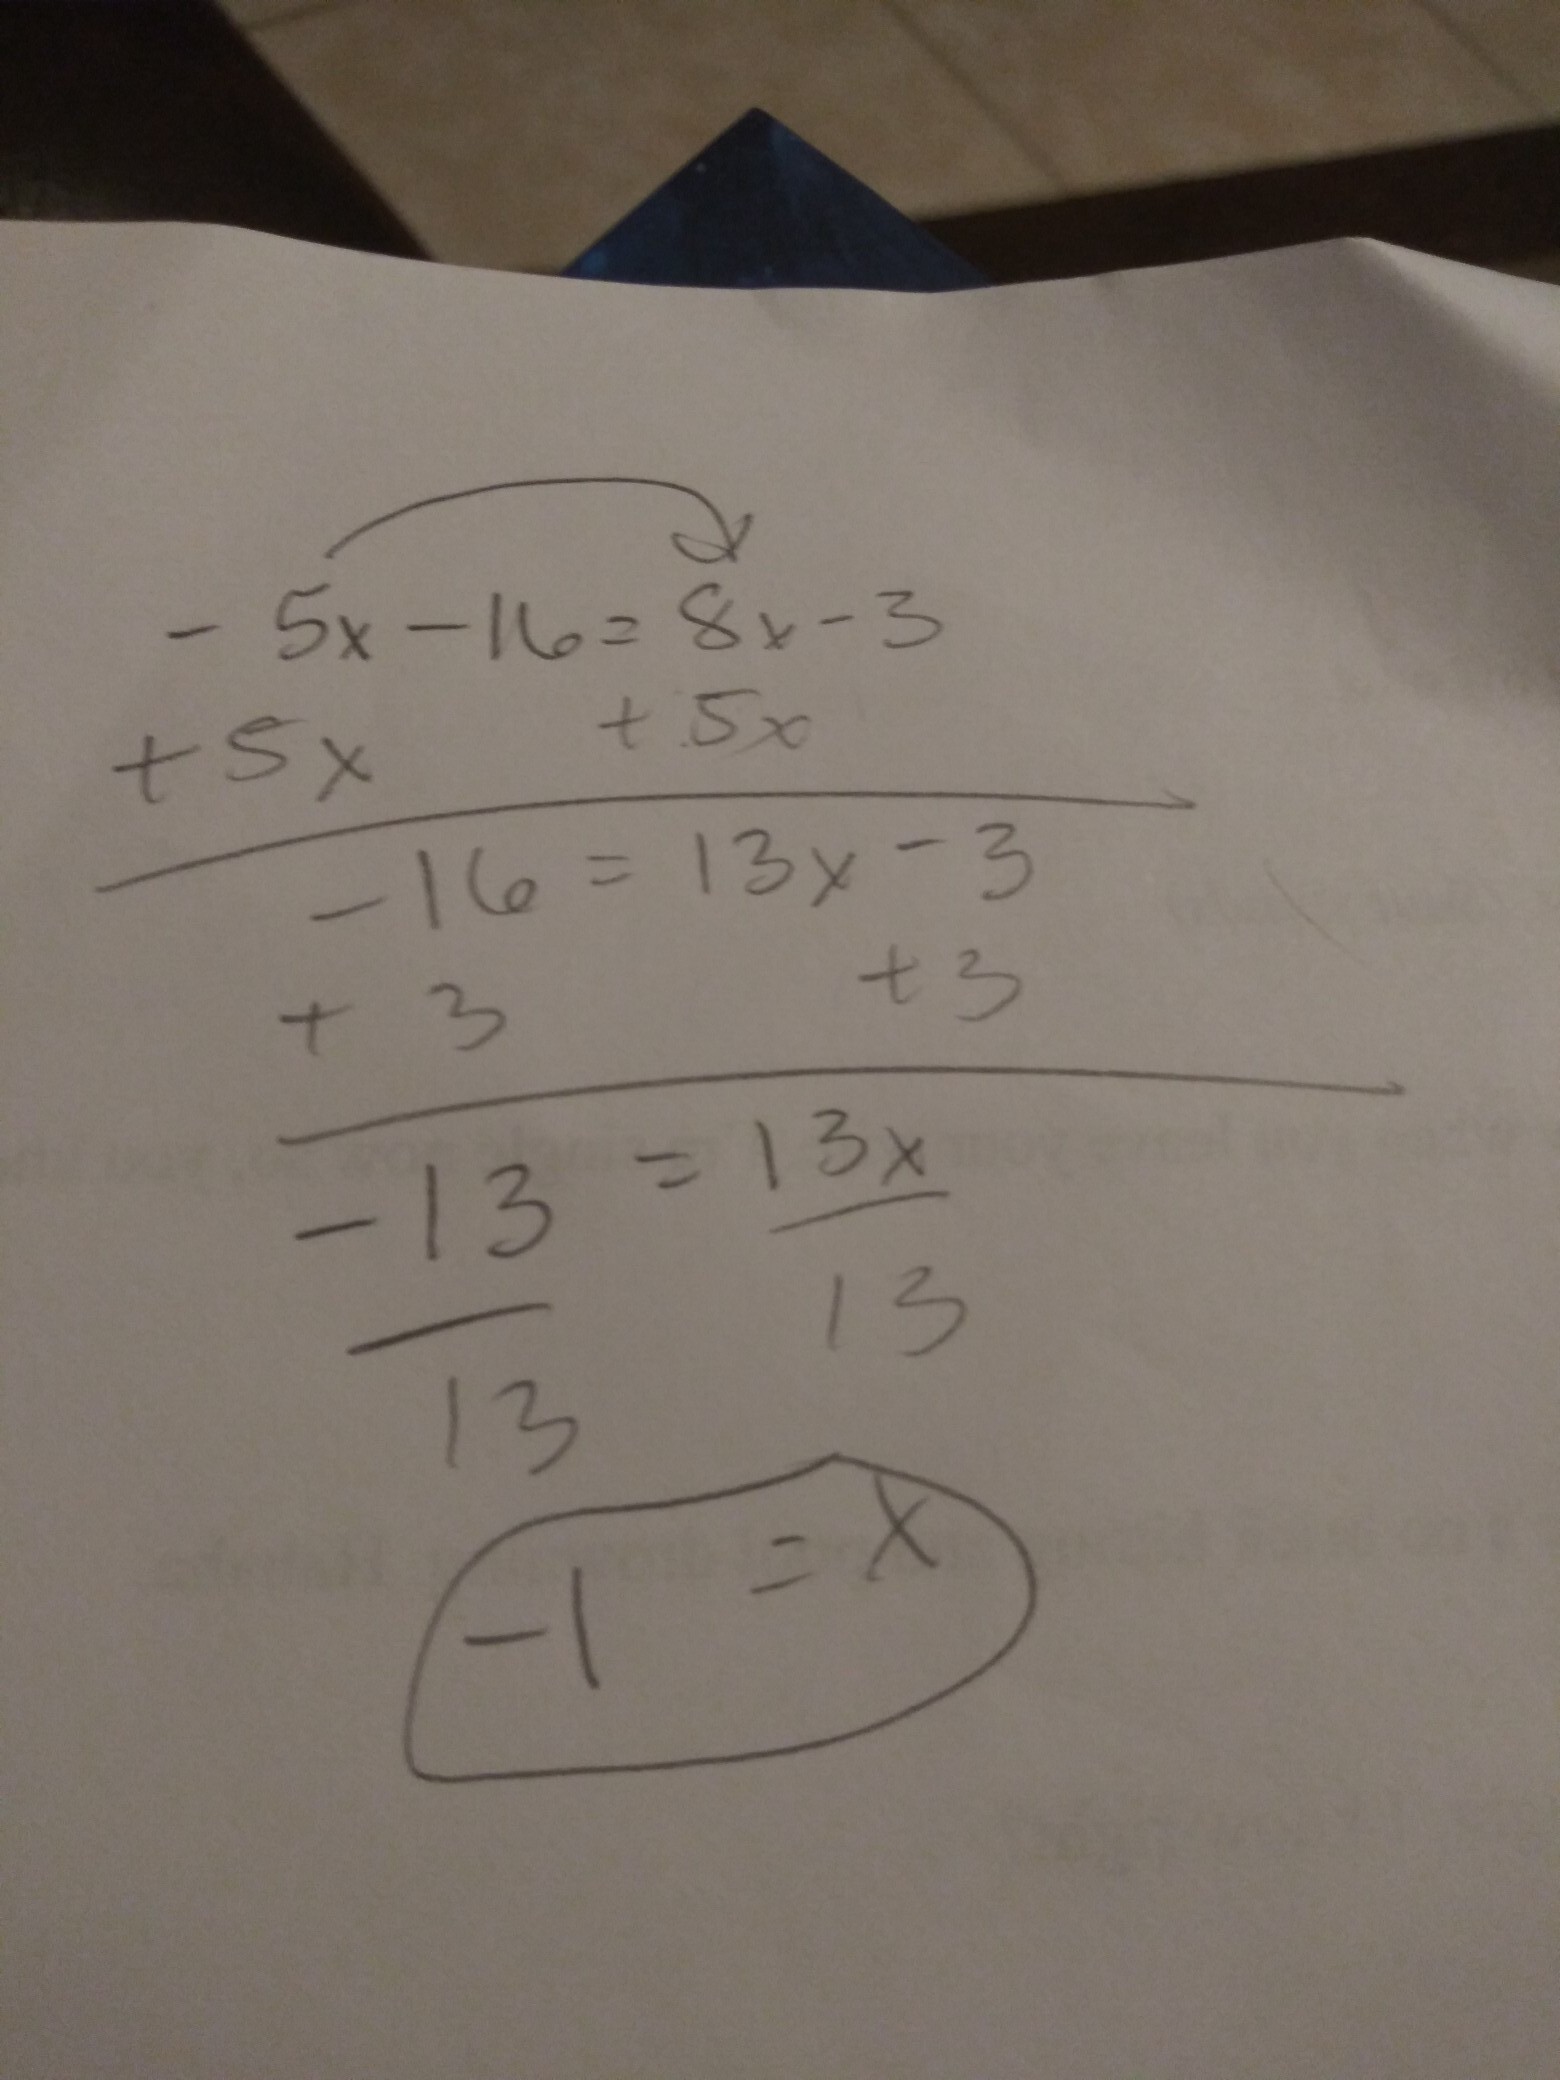 - 5x - 16 = 8x - 3
+ 5x + 5x
- 16 = 13x - 3
+ 3 + 3
- 13 = 13x
13 13
-1 = x